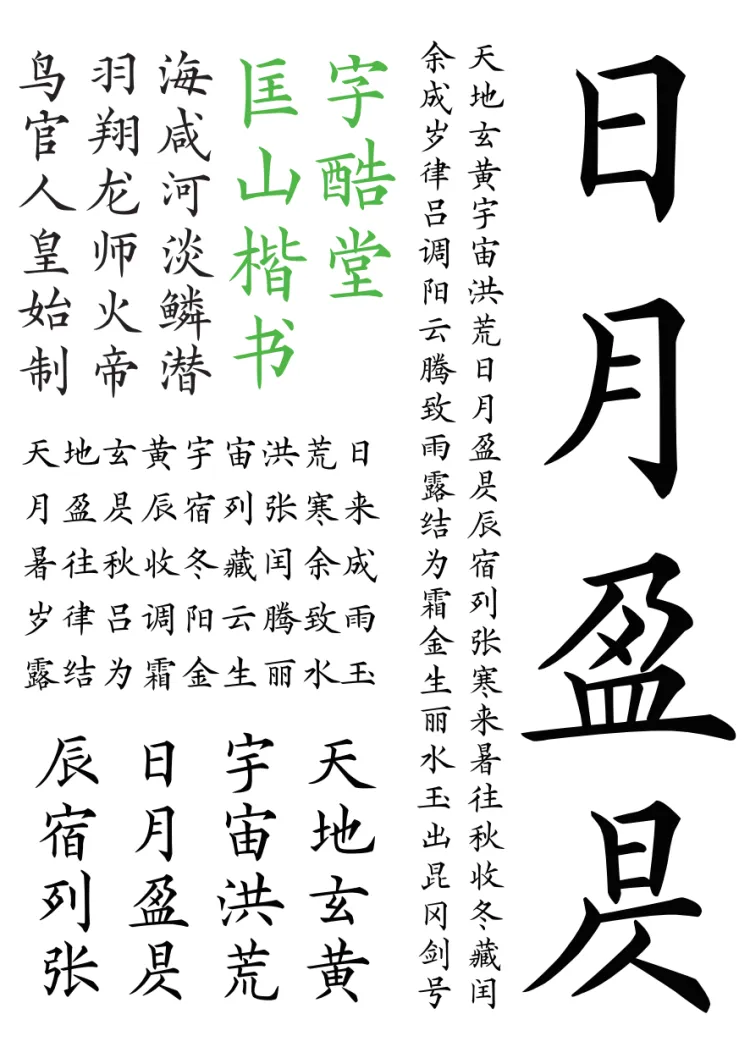 日月盈昃
天地玄黄宇宙洪荒日月盈昃辰宿列张寒来暑往秋收冬藏闰
余成岁律吕调阳云腾致雨露结为霜金生丽水玉出昆冈剑号
字酷堂
匡山楷书
海咸河淡鳞潜
羽翔龙师火帝
鸟官人皇始制
天地玄黄宇宙洪荒日
月盈昃辰宿列张寒来
暑往秋收冬藏闰余成
岁律吕调阳云腾致雨
露结为霜金生丽水玉
天地玄黄
宇宙洪荒
日月盈昃
辰宿列张